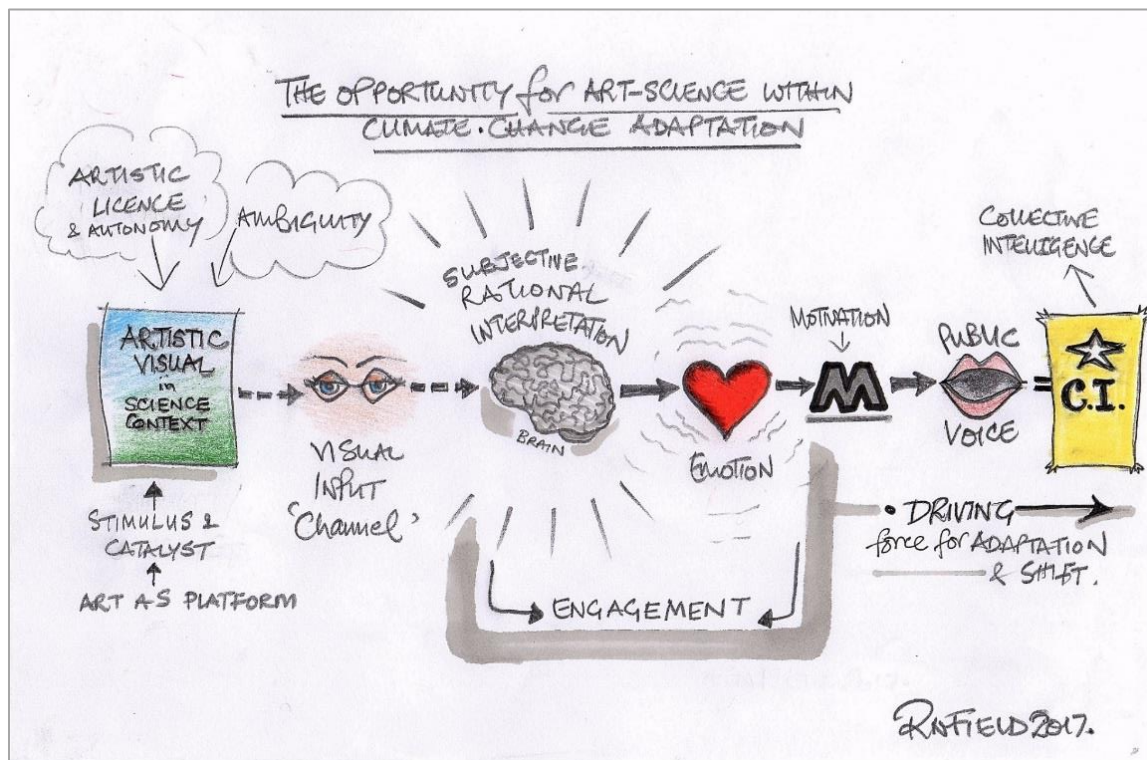 THE OPPORTUNITY for ART-SCIENCE WITHIN
CLIMATE·CHANGE ADAPTATION
ARTISTIC
LICENCE
& AUTONOMY
AMBIGUITY
ARTISTIC
VISUAL
in
SCIENCE
CONTEXT
STIMULUS &
CATALYST
ART AS PLATFORM
VISUAL
INPUT
'Channel'
SUBJECTIVE
RATIONAL
INTERPRETATION
BRAIN
EMOTION
MOTIVATION
M
PUBLIC
VOICE
COLLECTIVE
INTELLIGENCE
C.I.
ENGAGEMENT
• DRIVING
force for ADAPTATION
& SHIFT.
RNFIELD 2017.